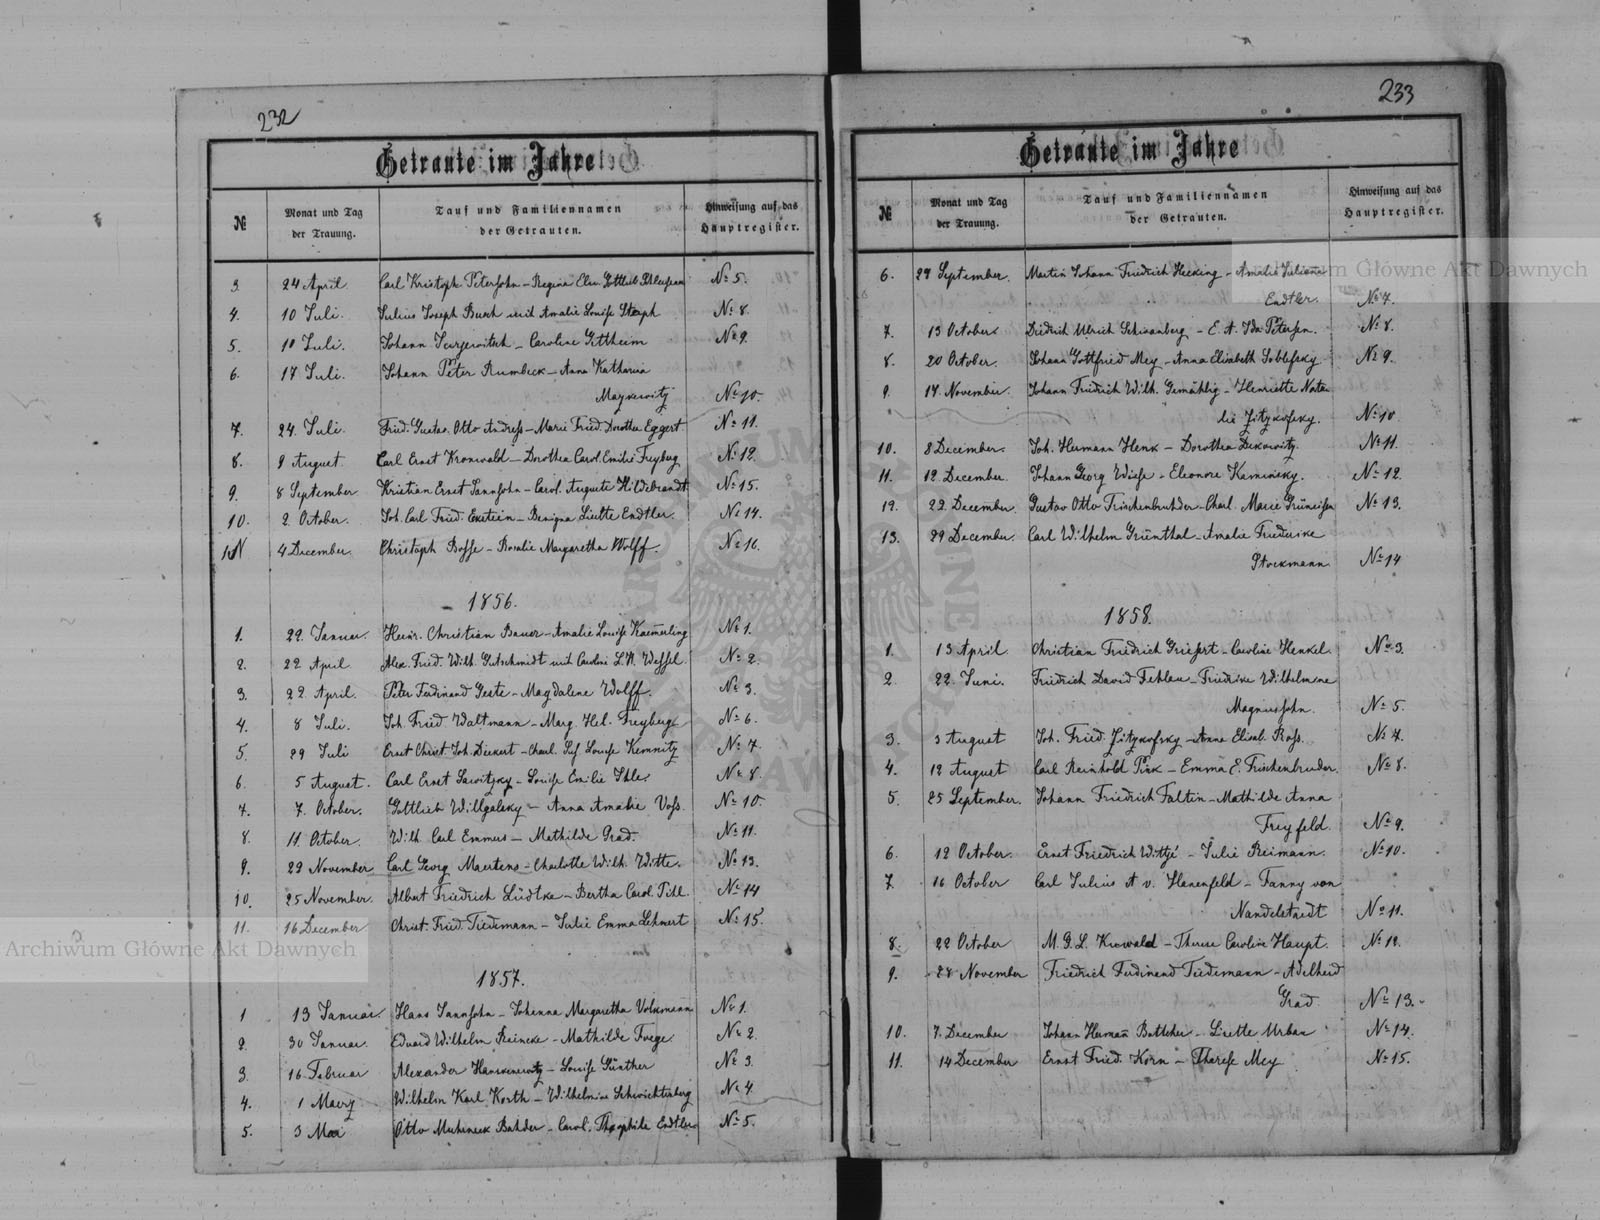 232
Getraute im Jahre
№
Monat und Tag
der Trauung.
Tauf und Familiennamen
der Getrauten.
Hinweisung auf das
Hauptregister.
3. 24 April. Carl Kristoph Petersohn - Regina Elis. Gottlieb № 5.
4. 10 Juli. Julius Joseph Busch mit Amalie Louise № 8.
5. 10 Juli. Johann - Caroline Gettheim № 9.
6. 17 Juli. Johann Peter Rumbeck - Anna Katharina
Maykewitz № 10.
7. 24. Juli. Fried. Gustav. Otto Andress - Marie Fried. Dorothea Eggert № 11.
8. 9 August. Carl Ernst Kronwald - Dorothea Carol. Emilie Freyberg № 12
9. 8 September Kristian Ernst Jannsohn - Carol. Auguste Hildebrandt № 15.
10. 2. October. Joh. Carl Fried. Eckstein - Benigna Lisette Endtler. № 14.
11. 4 December. Christoph Bosse - Rosalie Margaretha Wolff. № 16.
1856.
1. 22. Januar. Heinr. Christian Bauer - Amalie Louise Kaemerling № 1.
2. 22 April Alex. Fried. Wilh. Gutschmidt mit Caroline L. W. Wessel. № 2.
3. 22. April. Peter Ferdinand Geste - Magdalene Wolff. № 3.
4. 8 Juli. Joh. Fried. Waltmann - Marg. Hel. Freyberg № 6.
5. 29 Juli Ernst Christ. Joh. Dickert - Charl. Louise Kemnitz № 7.
6. 5 August. Carl Ernst Sawitzky - Louise Emilie Ihle. № 8.
7. 7. October. Gottlieb Willgalsky - Anna Amalie Voss. № 10.
8. 11 October. Wilh. Carl Emmers - Mathilde Grad. № 11.
9. 23 November Carl Georg Maertens - Charlotte Wilh. Witte. № 13.
10. 25 November. Albert Friedrich Lüdtke - Bertha Carol. Till. № 14
11. 16 December Christ. Fried. Tiedemann - Julie Emma Lehnert № 15
1857.
1 13 Januar. Hans Jannsohn - Johanna Margaretha Volkmann № 1.
2. 30 Januar. Eduard Wilhelm Reineke - Mathilde Froege. № 2.
3. 16 Februar Alexander - Louise Günther № 3
4. 1 Maerz Wilhelm Karl Korth - Wilhelmine Schwichtenberg № 4.
5. 3 Mai Otto Bahder - Carol. Theophile Endtler № 5.
233
Getraute im Jahre
№
Monat und Tag
der Trauung.
Tauf und Familiennamen
der Getrauten.
Hinweisung auf das
Hauptregister.
6. 29 September. Martin Johann Friedrich Hecking - Amalie Juliane
Endtler. № 7.
7. 13 October Diedrich Ulrich Schwanberg - E. A. Ida Petersen. № 8.
8. 20 October. Johann Gottfried Mey - Anna Elisabeth № 9.
9. 17. November. Johann Friedrich Wilh. Gemählig - Henriette Nata-
lie Zitzkofsky. № 10
10. 8 December. Joh. Hermann Henk - Dorothea Dekowitz. № 11.
11. 12 December. Johann Georg Wiese - Eleonore Kaminsky. № 12.
12. 22. December. Gustav Otto Frischenbruhder - Charl. Marie Grüneisen № 13.
13. 29 December. Carl Wilhelm Grünthal - Amalie Friederike
Stockmann № 14
1858.
1. 13 April Christian Friedrich Griefert - Caroline Henkel № 3.
2. 22. Juni. Friedrich David Fehlau - Friedrike Wilhelmine
Magnussohn. № 5.
3. 3 August Joh. Fried. Zitzkofsky - Anna Elisab. Ross. № 7.
4. 12 August Carl Reinhold Pirk - Emma E. Frischenbruder. № 8.
5. 25 September. Johann Friedrich Faltin - Mathilde Anna
Freyfeld. № 9.
6. 12 October. Ernst Friedrich Wittjé - Julie Reimann. № 10.
7. 16 October Carl Julius A v. Hanenfeld - Fanny von
Nandelstaedt № 11.
8. 22 October M. G. L. Kronwald - Therese Caroline Haupt. № 12.
9. 28 November Friedrich Ferdinand Tiedemann - Adelheid
Grad № 13.
10. 7. December Johann Hermañ Buttcher - Lisette Urban № 14.
11. 14 December Ernst Fried. Korn - Therese Mey № 15.
Archiwum Główne Akt Dawnych
Archiwum Główne Akt Dawnych
ARCHIWUM GŁÓWNE AKT DAWNYCH